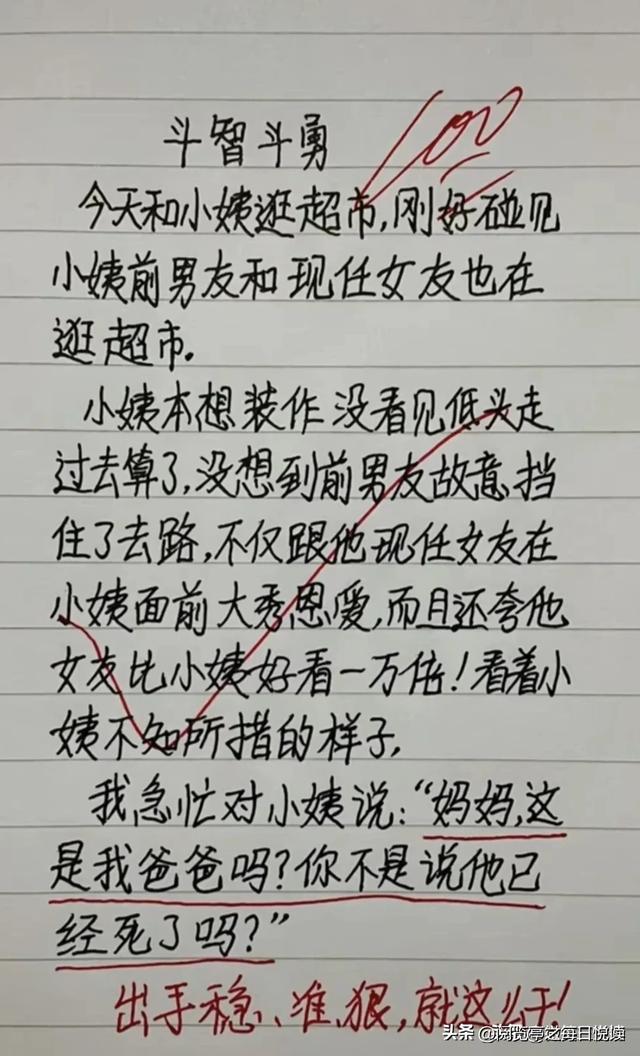 斗智斗勇
100
今天和小姨逛超市,刚好碰见
小姨前男友和现任女友也在
逛超市.
小姨本想装作没看见低头走
过去算了,没想到前男友故意挡
住了去路,不仅跟他现任女友在
小姨面前大秀恩爱,而且还夸他
女友比小姨好看一万倍!看着小
姨不知所措的样子,
我急忙对小姨说:“妈妈,这
是我爸爸吗?你不是说他已
经死了吗?”
出手稳、准、狠,就这么干!
头条 @
每日悦读